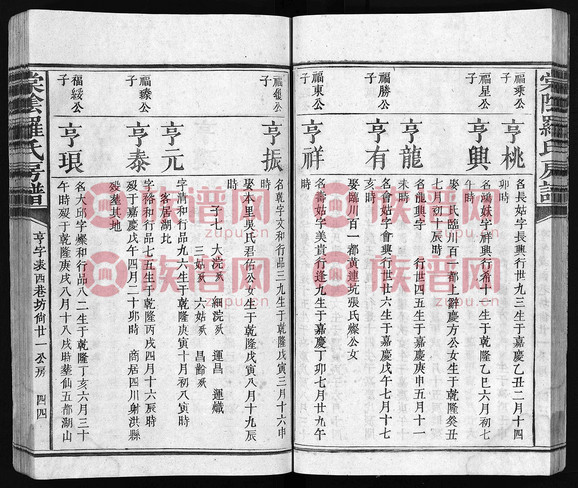 棠陰羅氏房譜
福乘公子
亨桃
名長姑字長興行世九三生于嘉慶乙丑二月十四
卯時
福星公子
亨興
名鴻妹字祥興行者十一生于乾隆乙巳六月初七
時
娶 氏臨川百一都上辭慶方公女生于乾隆癸丑
七月初十辰時
亨龍
名龍興字 行世四五生于嘉慶庚申五月十一
未時
福勝公子
亨有
名會姑字會興行世六生于嘉慶戊午七月十七
亥時
福東公子
亨祥
名喬姑字美貴行逢九生于嘉慶丁卯七月廿九午
時
娶臨川百一都黄連坑張氏燦公女
福 公子
亨振
名乾字文和行品三九生于乾隆戊寅三月十六申
時
娶本里吳氏君佑公女生于乾隆戊寅八月十九辰
時
子七 大浣 細浣 運昌 運熾
三姑 六姑 昌餘
亨元
字清和行品九六生于乾隆庚寅十月初八寅時
客居湖北
福臻公子
亨泰
字裕和行品七五生于乾隆丙戌四月十六辰時
歿于嘉慶戊午四月二十卯時 商居四川射洪縣
歿葬其地
福綏公子
亨琅
名大邱字燦和行品八二生于乾隆丁亥六月三十
午時歿于乾隆庚戌八月十八戌時葬仙五都湖山
棠陰羅氏房譜
亨字表西巷坊尙廿一公房
四四
族谱网
www.zupu.cn